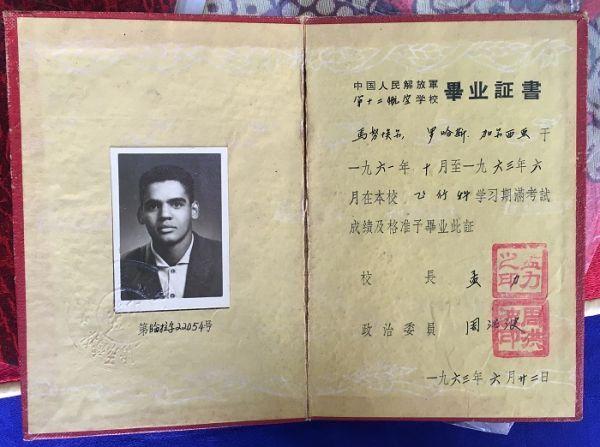 第臨校字22054号
中国人民解放軍
第十二航空学校
畢业証書
馬努埃尔,罗哈斯,加尔西亚于
一九六一年十月至一九六三年六
月在本校,飞行科学习期滿考試
成績及格准予畢业此証
校長 孟力
孟力之印
政治委員 周洪波
周洪波印
一九六三年六月廿二日